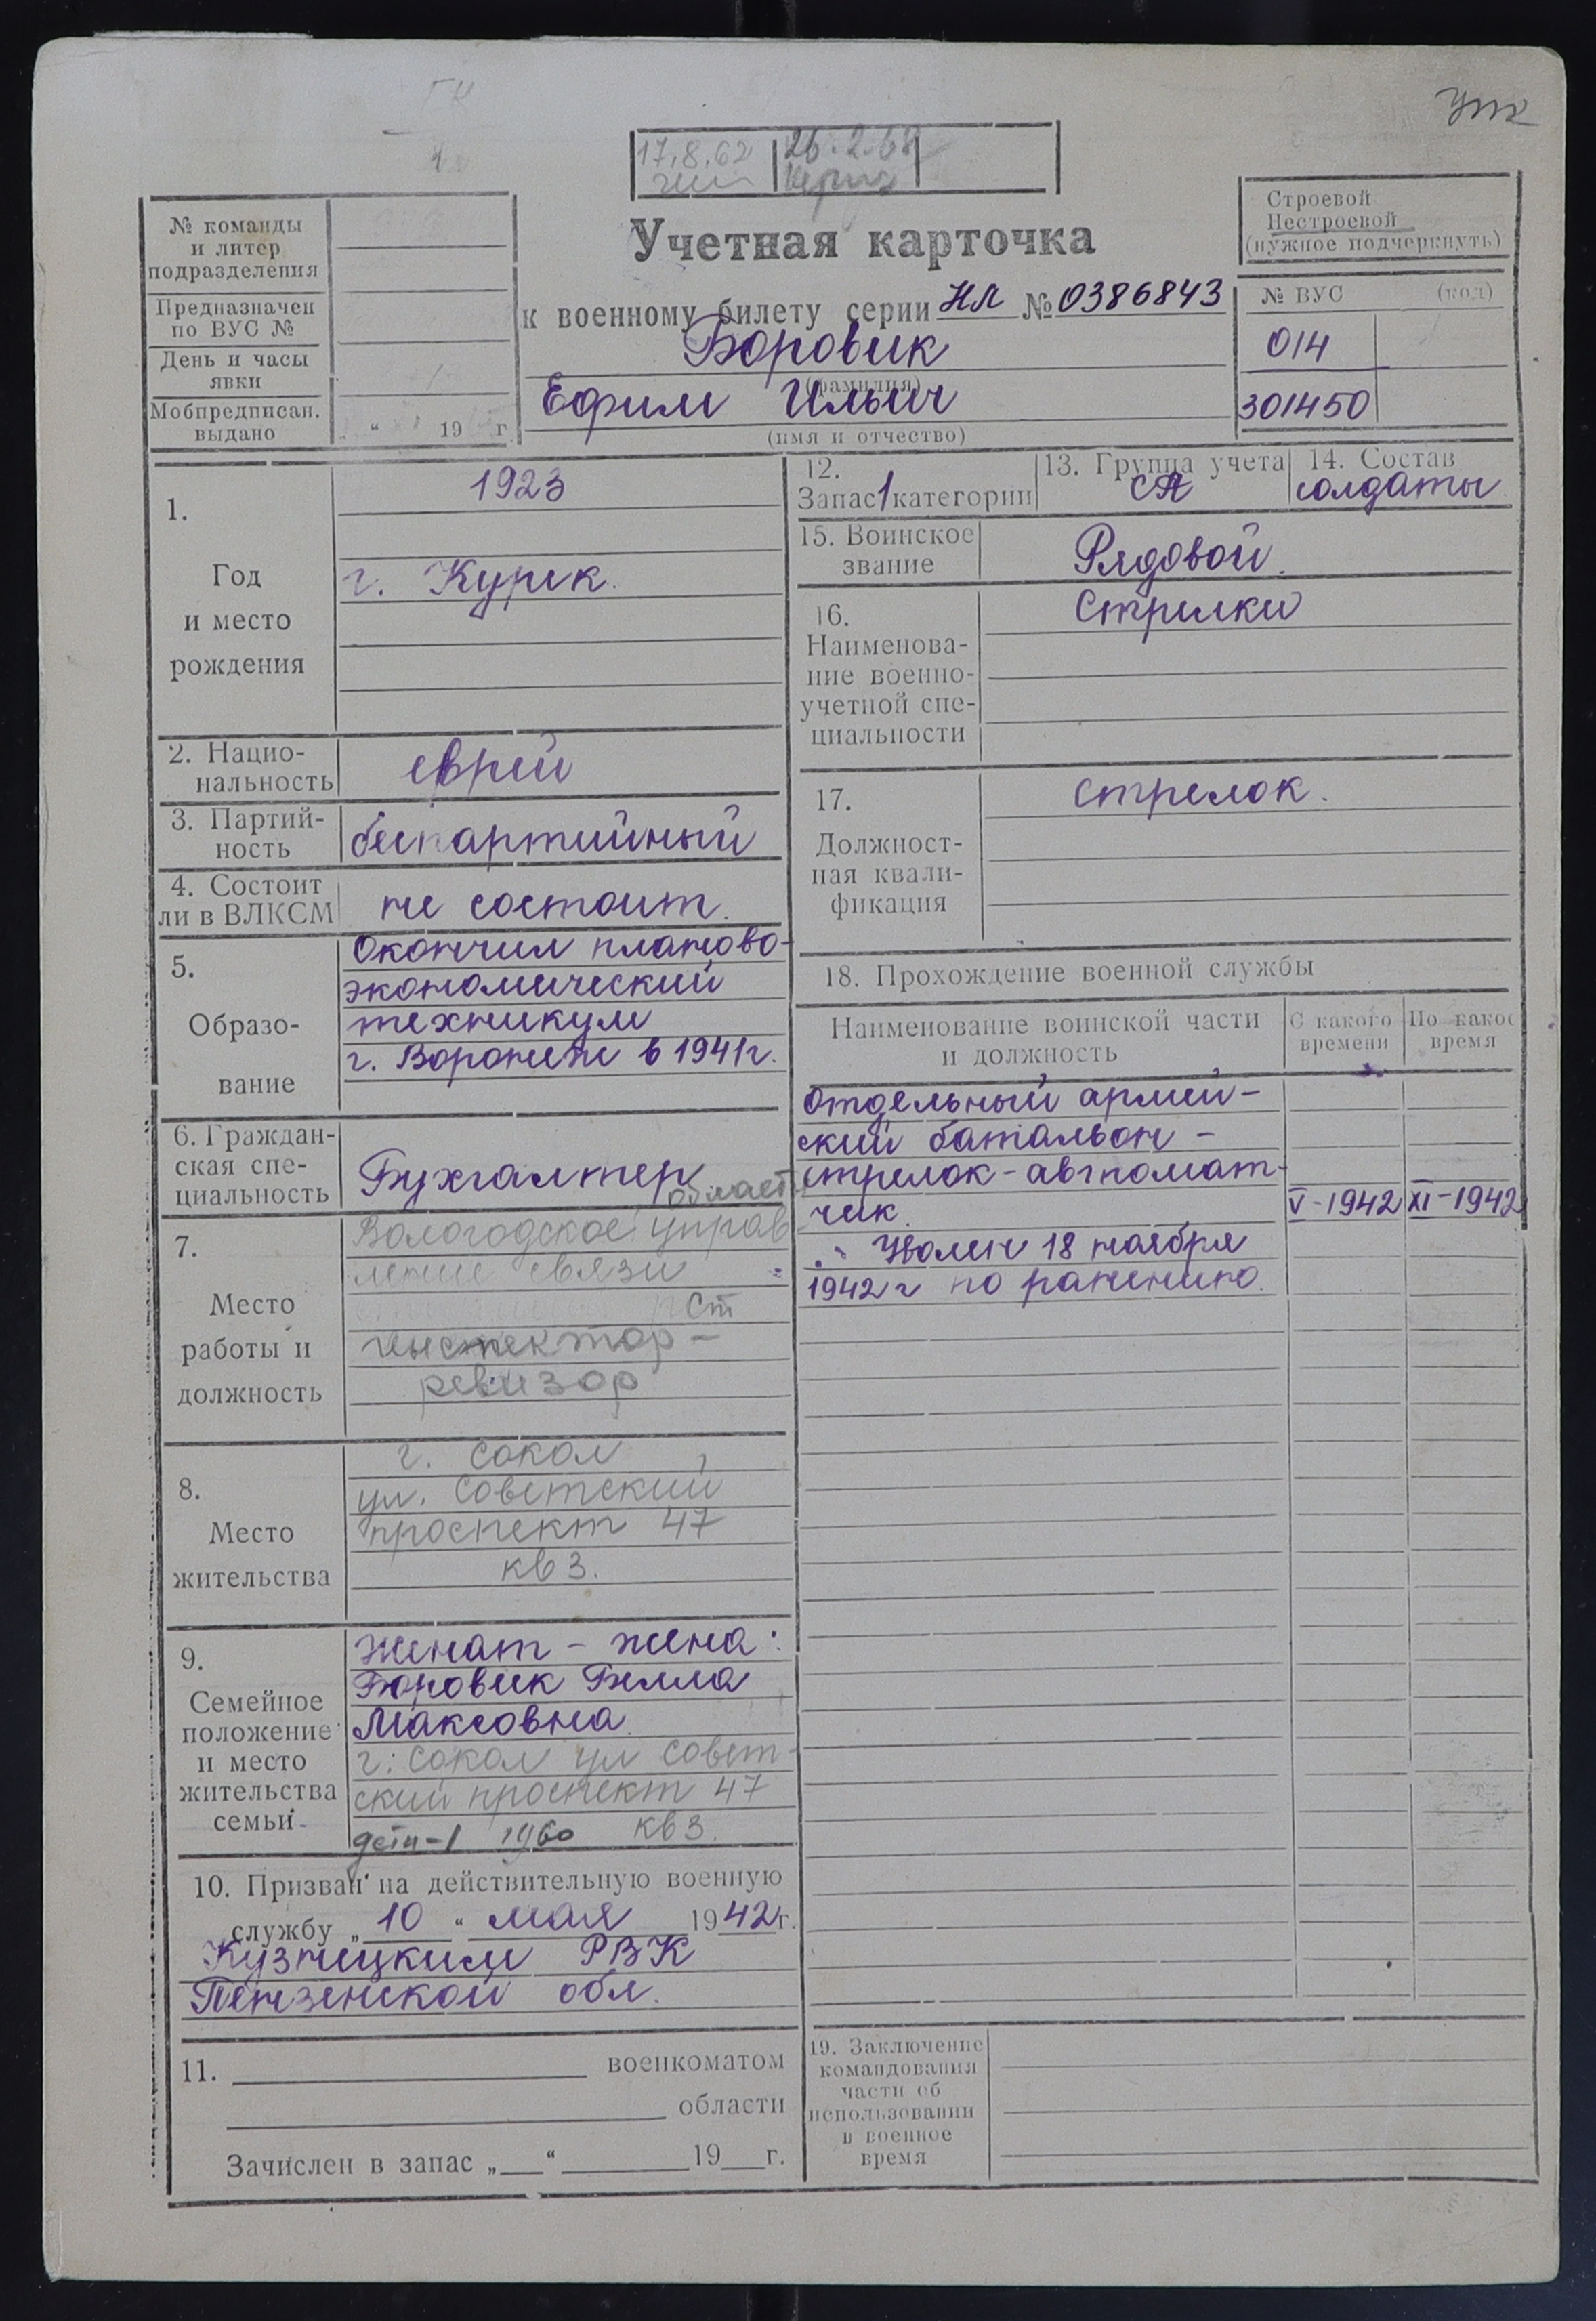 упк
17.8.62
26.2.68
Строевой
Нестроевой
(нужное подчеркнуть)
№ команды
и литер
подразделения
Предназначен
по ВУС №
День и часы
явки
Мобпредписан.
выдано
“ 19 г.
Учетная карточка
к военному билету серии НЛ № 0386843
Боровик
(фамилия)
Ефим Ильич
(имя и отчество)
№ ВУС (код)
014
301450
1.
Год
и место
рождения
1923
г. Курск.
2. Нацио-
нальность
еврей
3. Партий-
ность
беспартийный
4. Состоит
ли в ВЛКСМ
не состоит.
5.
Образо-
вание
Окончил планово-
экономический
техникум
г. Воронеж в 1941г.
6. Граждан-
ская спе-
циальность
Бухгалтер
7.
Место
работы и
должность
област
Вологодское управ
ление связи
Ст
инспектор-
ревизор
8.
Место
жительства
г. Сокол
ул. Советский
проспект 47
кв 3.
9.
Семейное
положение
и место
жительства
семьи
Женат - жена:
Боровик Бэлла
Максовна
г. Сокол ул Совет-
ский проспект 47
дети-1 1960 кв 3.
10. Призван на действительную военную
службу „10“ мая 1942г.
Кузнецким РВК
Пензенской обл.
11. военкоматом
области
Зачислен в запас „ “ 19 г.
12.
Запас 1 категории
13. Группа учета
СА
14. Состав
солдаты
15. Воинское
звание
Рядовой.
16.
Наименова-
ние военно-
учетной спе-
циальности
Стрелки
17.
Должност-
ная квали-
фикация
стрелок.
18. Прохождение военной службы
Наименование воинской части
и должность
С какого
времени
По какое
время
Отдельный армей-
ский батальон -
стрелок-автомат-
чик. V-1942 XI-1942
Уволен 18 ноября
1942 г по ранению.
19. Заключение
командования
части об
использовании
в военное
время